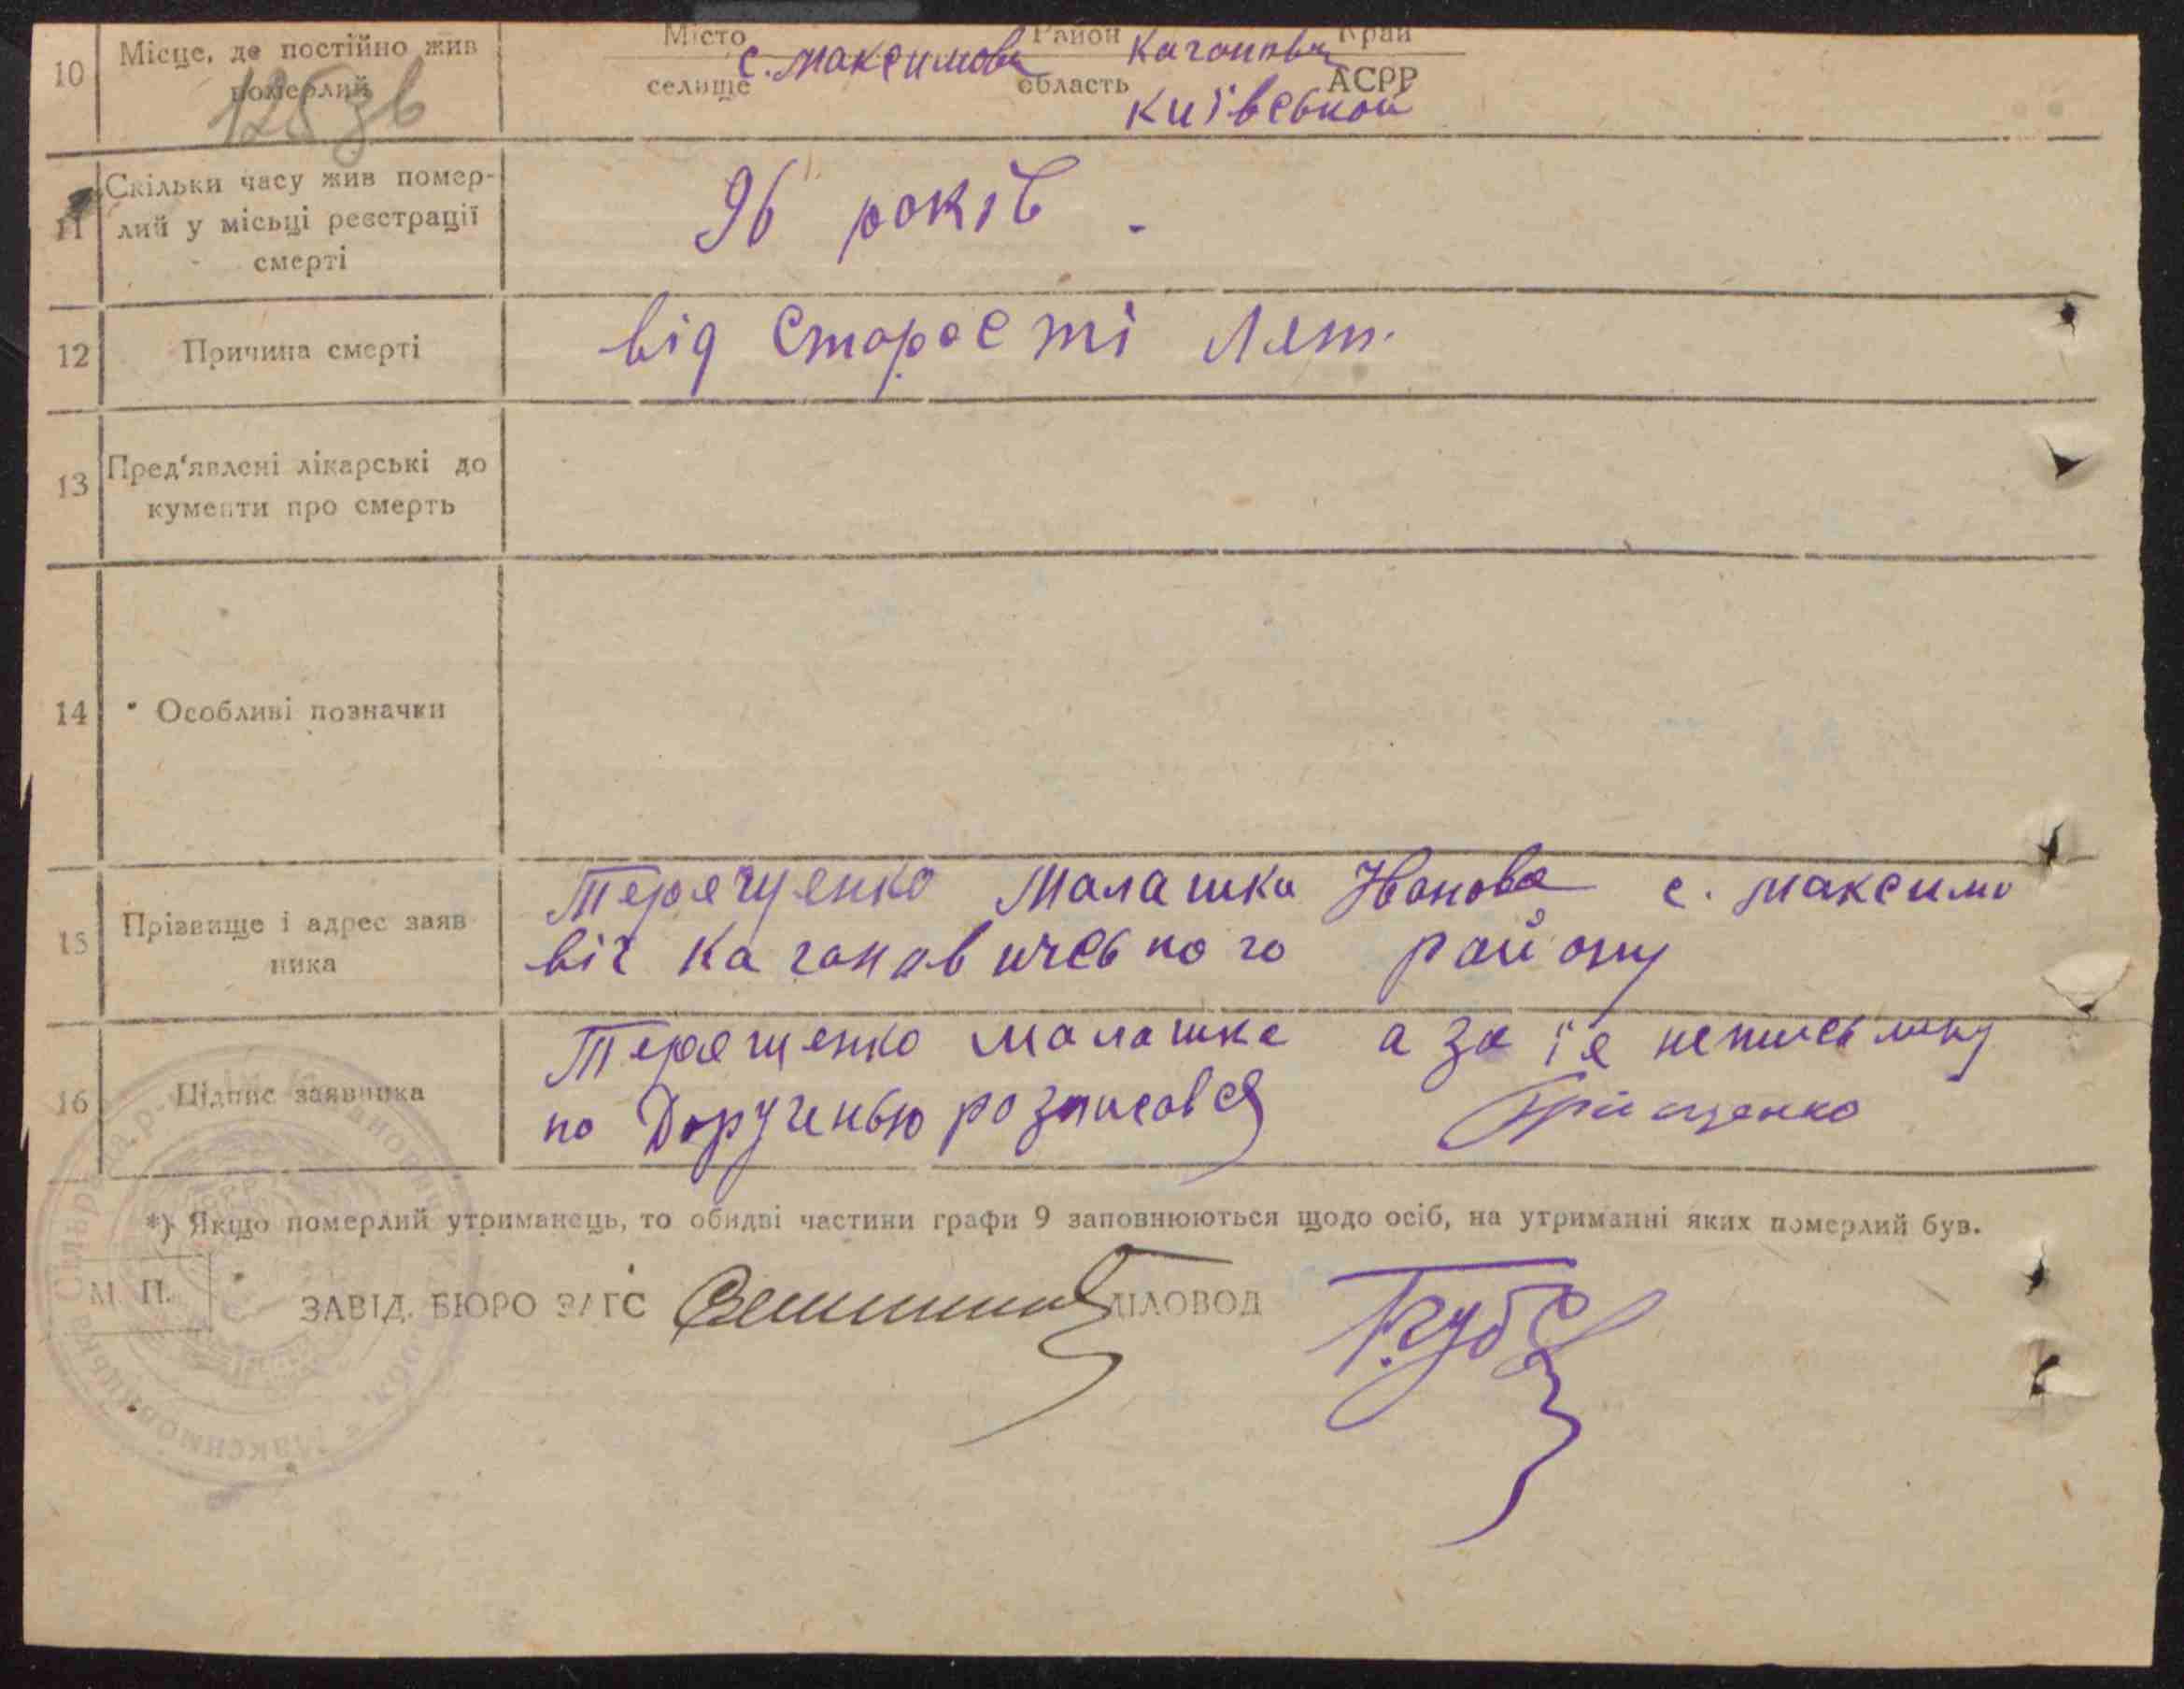 Місто Район Край
10 Місце, де постійно жив померлий
с. Максимови Каганови
селище область АСРР
125 зв
Київської
11 Скільки часу жив помер-
лий у місьці реєстрації
смерті
96 років.
12 Причина смерті
від старості лет.
13 Пред'явлені лікарські до
кументи про смерть
14 Особливі позначки
15 Прізвище і адрес заяв
ника
Терещенко Малашка Іванова с. Максимо
віч Кагановичського району
16 Підпис заявника
Терещенко Малашка а за її неписьмну
по Дорученью розписався Грищенко
*) Якщо померлий утриманець, то обидві частини графи 9 заповнюються щодо осіб, на утриманні яких померлий був.
М. П.
ЗАВІД. БЮРО ЗАГС ДІЛОВОД Губа